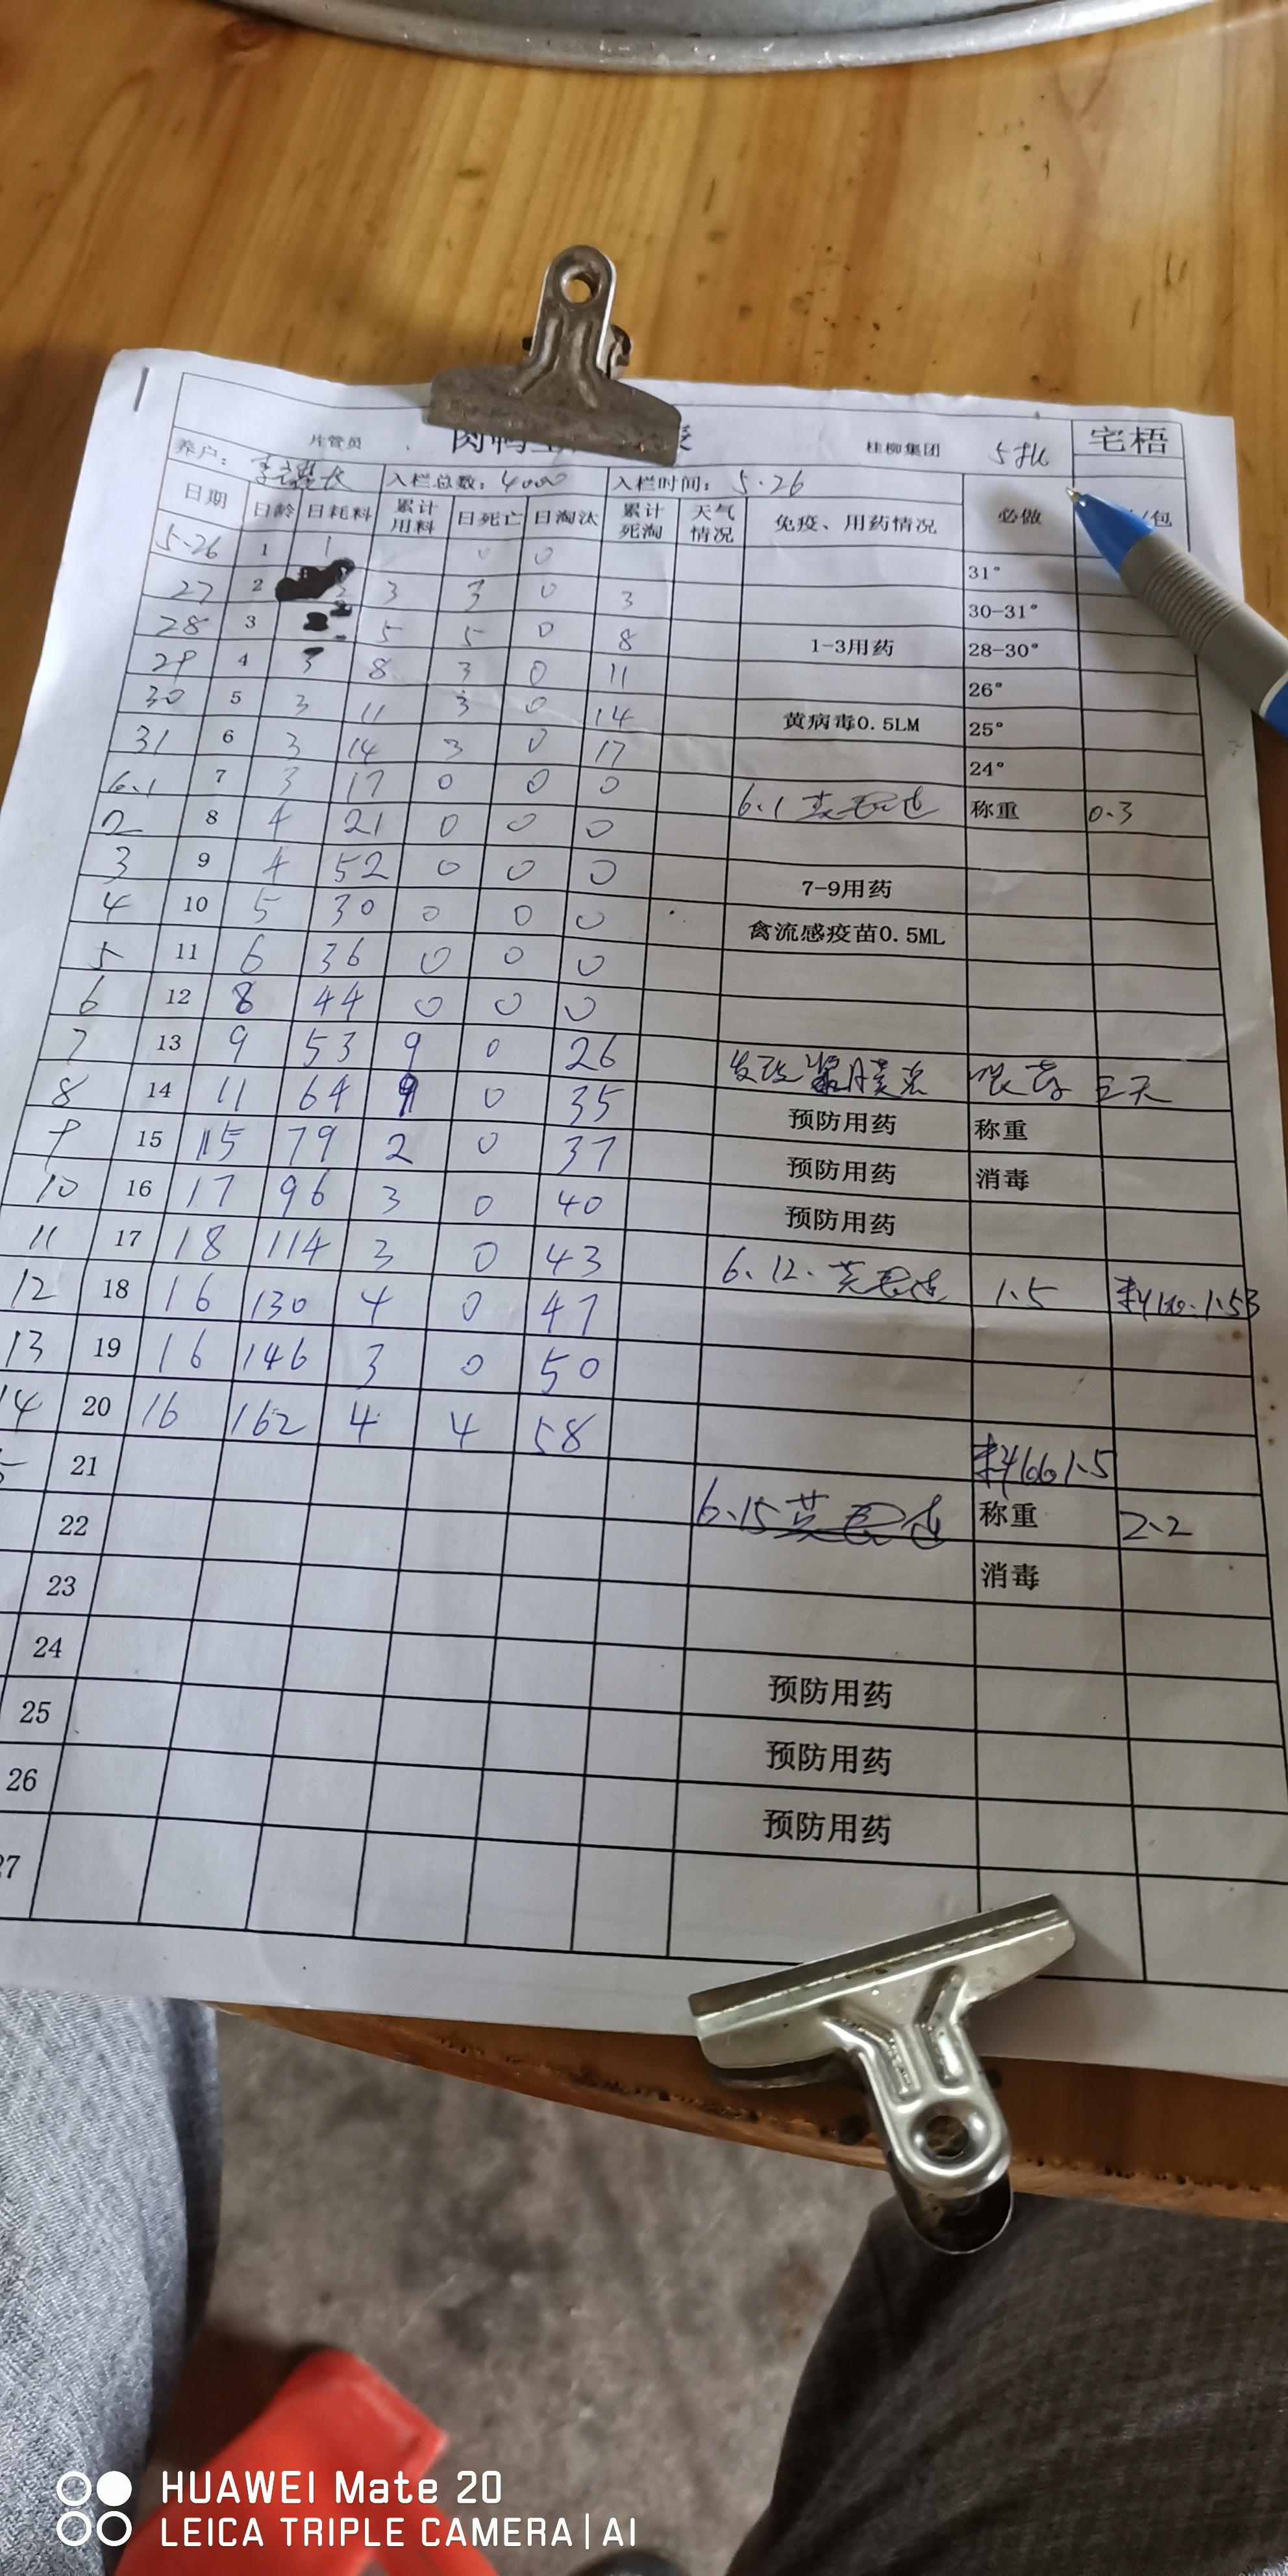 片管员 桂柳集团 5批 宅梧
养户： 入栏总数：4000 入栏时间：5.26
日期 日龄 日耗料 累计用料 日死亡 日淘汰 累计死淘 天气情况 免疫、用药情况 必做 /包
5-26 1 1 0 0 31°
27 2 2 3 3 0 3 30-31°
28 3 5 5 0 8 1-3用药 28-30°
29 4 3 8 3 0 11 26°
30 5 3 11 3 0 14 黄病毒0.5LM 25°
31 6 3 14 3 0 17 24°
6.1 7 3 17 0 0 0 6.1 称重 0.3
2 8 4 21 0 0 0
3 9 4 52 0 0 0 7-9用药
4 10 5 30 0 0 0 禽流感疫苗0.5ML
5 11 6 36 0 0 0
6 12 8 44 0 0 0
7 13 9 53 9 0 26 三天
8 14 11 64 9 0 35 预防用药 称重
9 15 15 79 2 0 37 预防用药 消毒
10 16 17 96 3 0 40 预防用药
11 17 18 114 3 0 43
12 18 16 130 4 0 47 6.12. 1.5
13 19 16 146 3 0 50
14 20 16 162 4 4 58
21 料
22 6.15 称重 2.2
23 消毒
24
25 预防用药
26 预防用药
27 预防用药
HUAWEI Mate 20
LEICA TRIPLE CAMERA | AI